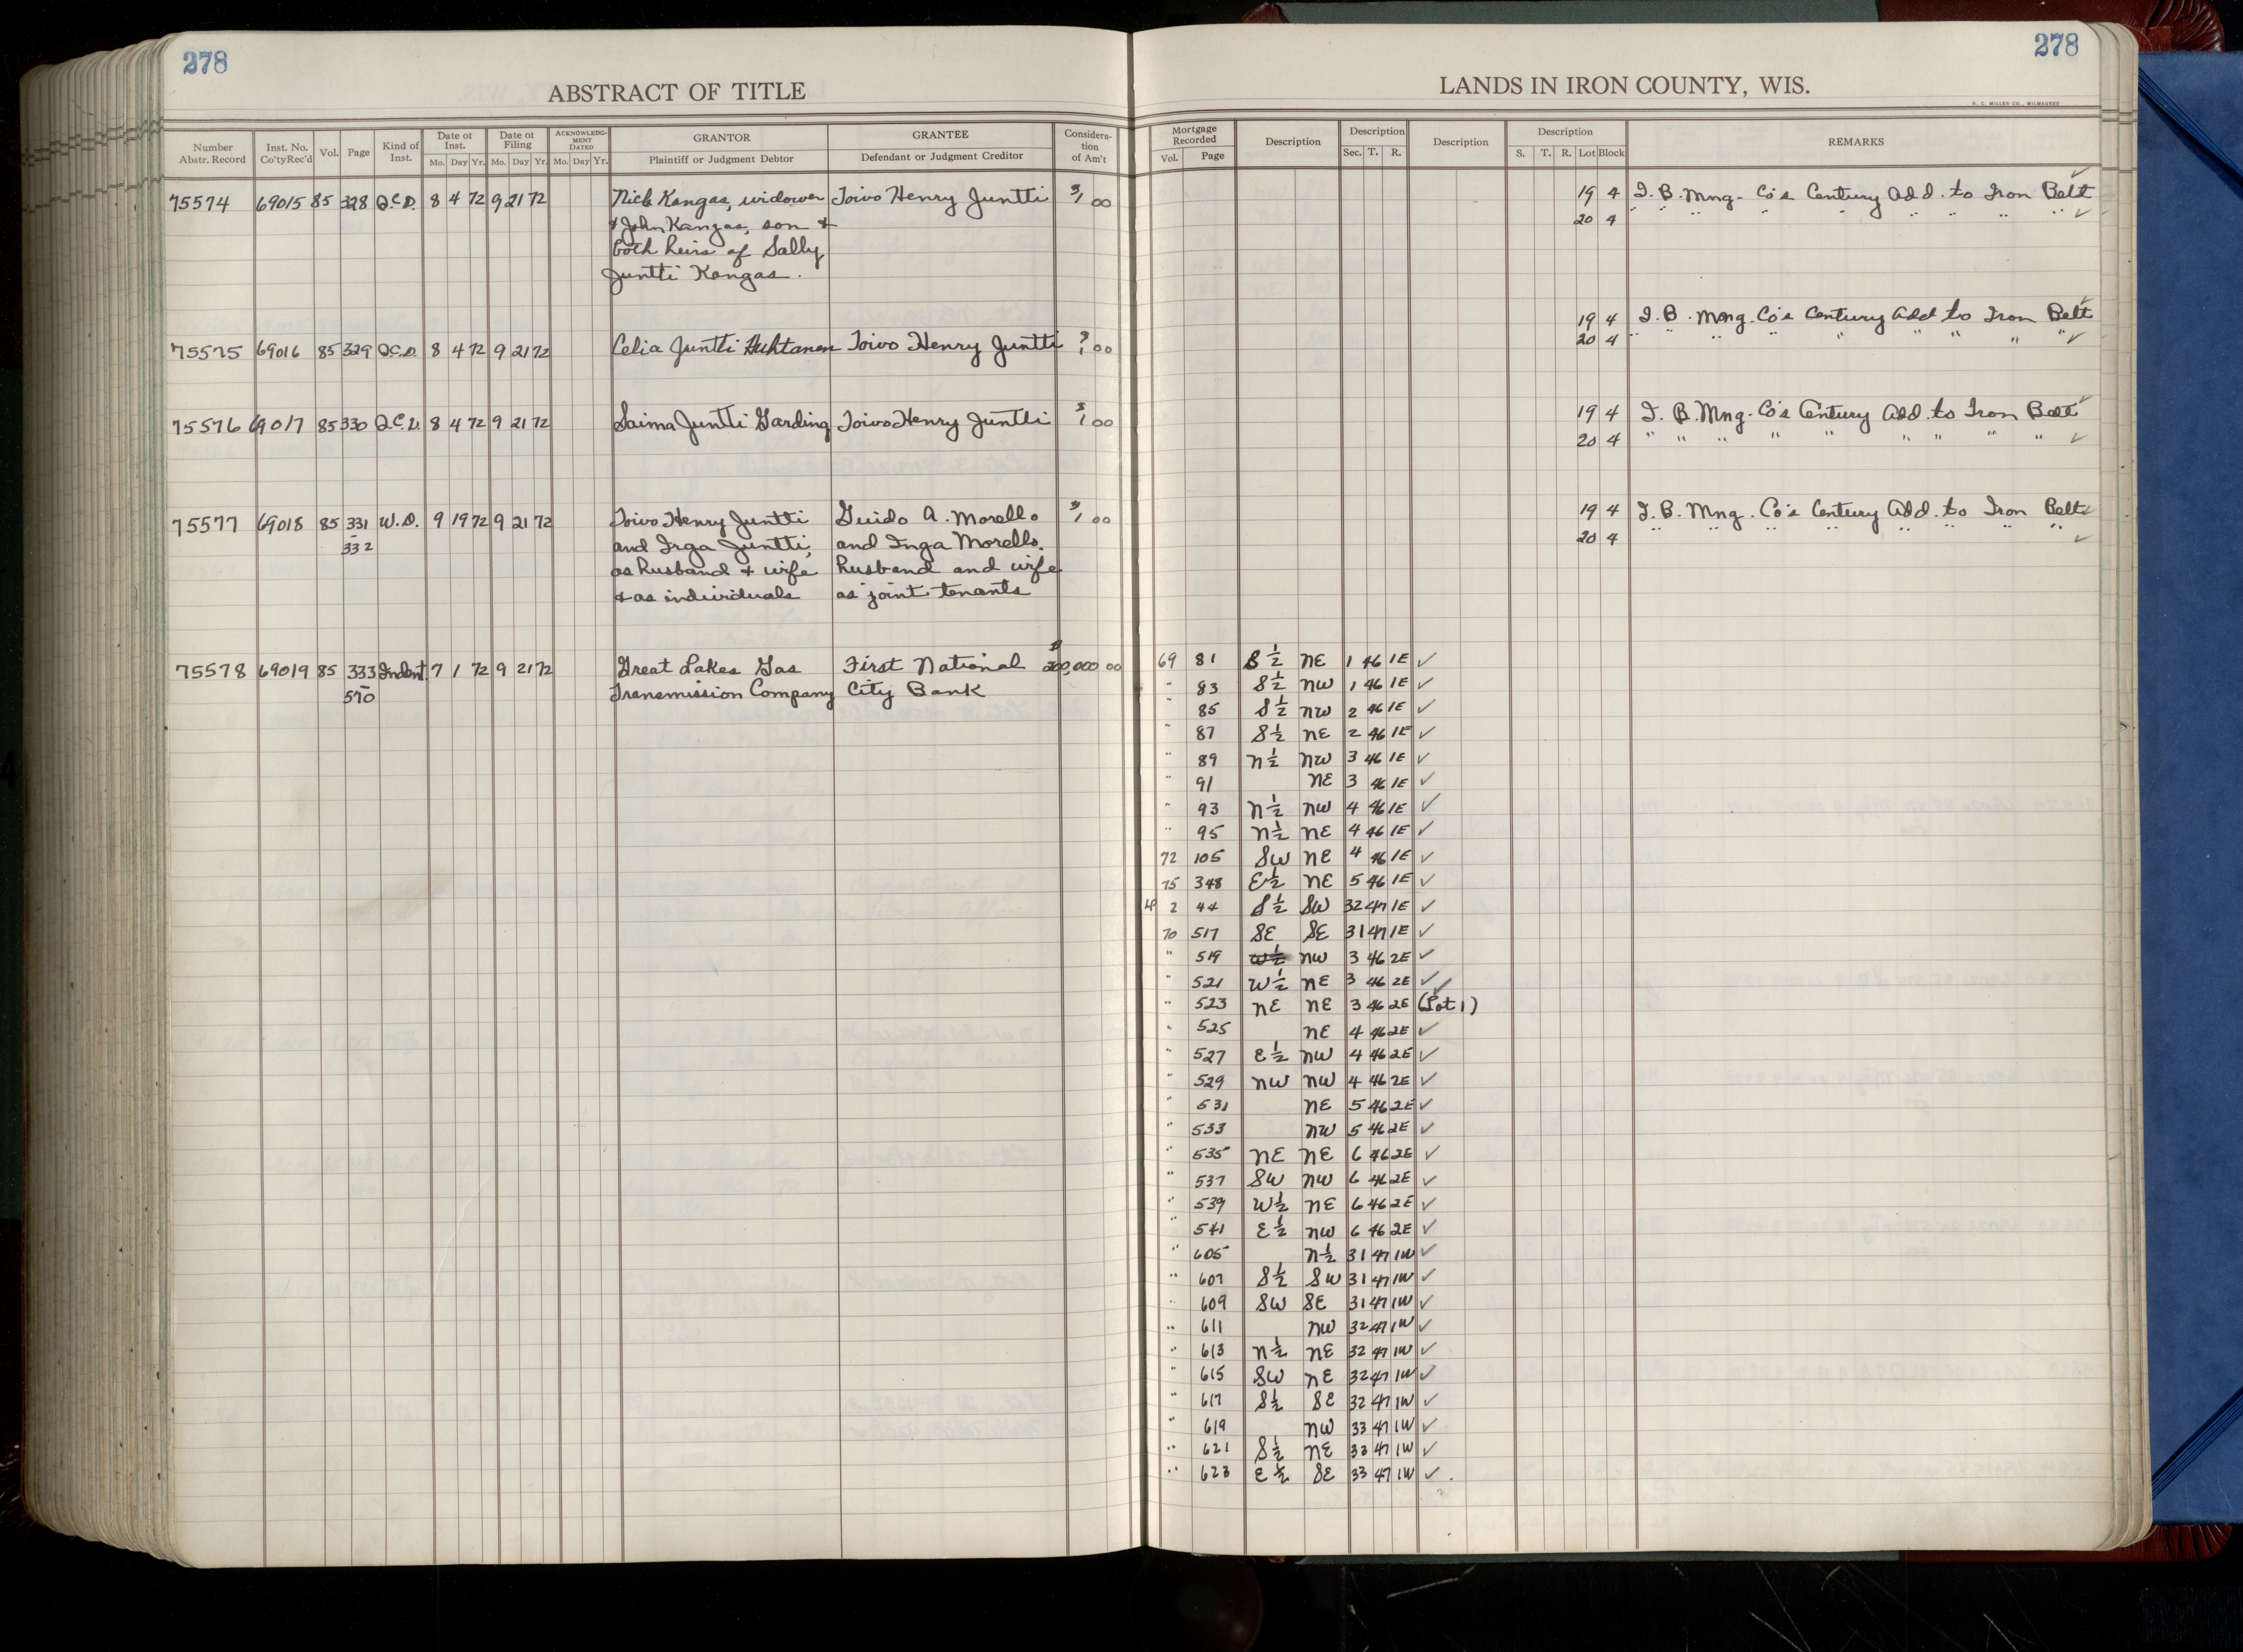 278
278
ABSTRACT OF TITLE
LANDS IN IRON COUNTY, WIS.
H. C. MILLER CO., MILWAUKEE
Number Abstr. Record Inst. No. Co'ty Rec'd Vol. Page Kind of Inst. Date of Inst. Mo. Day Yr. Date of Filing Mo. Day Yr. ACKNOWLEDGMENT DATED Mo. Day Yr. GRANTOR Plaintiff or Judgment Debtor GRANTEE Defendant or Judgment Creditor Consideration of Am't
Mortgage Recorded Vol. Page Description Description Sec. T. R. Description Description S. T. R. Lot Block REMARKS
75574 69015 85 328 Q.C.D. 8 4 72 9 21 72 Nick Kangas, widower Toivo Henry Juntti $1 00 19 4 I. B. Mng. Co's Century Add. to Iron Belt ✓
& John Kangas, son & 20 4 " " " " " " " " ✓
both heirs of Sally
Juntti Kangas.
75575 69016 85 329 Q.C.D. 8 4 72 9 21 72 Celia Juntti Huhtanen Toivo Henry Juntti $1 00 19 4 I. B. Mng. Co's Century Add to Iron Belt ✓
20 4 " " " " " " " " ✓
75576 69017 85 330 Q.C.D. 8 4 72 9 21 72 Saima Juntti Garding Toivo Henry Juntti $1 00 19 4 I. B. Mng. Co's Century Add. to Iron Belt ✓
20 4 " " " " " " " " " ✓
75577 69018 85 331 W.D. 9 19 72 9 21 72 Toivo Henry Juntti Guido A. Morello $1 00 19 4 I. B. Mng. Co's Century Add. to Iron Belt ✓
- 332 and Irga Juntti, and Inga Morello, 20 4 " " " " " " " " ✓
as husband & wife husband and wife
& as individuals as joint tenants
75578 69019 85 333 Indent. 7 1 72 9 21 72 Great Lakes Gas First National $200,000 00
- 570 Transmission Company City Bank
69 81 S½ NE 1 46 1E ✓
" 83 S½ NW 1 46 1E ✓
" 85 S½ NW 2 46 1E ✓
" 87 S½ NE 2 46 1E ✓
" 89 N½ NW 3 46 1E ✓
" 91 NE 3 46 1E ✓
" 93 N½ NW 4 46 1E ✓
" 95 N½ NE 4 46 1E ✓
72 105 SW NE 4 46 1E ✓
75 348 E½ NE 5 46 1E ✓
2 44 S½ SW 32 47 1E ✓
70 517 SE SE 31 47 1E ✓
" 519 W½ NW 3 46 2E ✓
" 521 W½ NE 3 46 2E ✓
" 523 NE NE 3 46 2E (Lot 1) ✓
" 525 NE 4 46 2E ✓
" 527 E½ NW 4 46 2E ✓
" 529 NW NW 4 46 2E ✓
" 531 NE 5 46 2E ✓
" 533 NW 5 46 2E ✓
" 535 NE NE 6 46 2E ✓
" 537 SW NW 6 46 2E ✓
" 539 W½ NE 6 46 2E ✓
" 541 E½ NW 6 46 2E ✓
" 605 N½ 31 47 1W ✓
" 607 S½ SW 31 47 1W ✓
" 609 SW SE 31 47 1W ✓
" 611 NW 32 47 1W ✓
" 613 N½ NE 32 47 1W ✓
" 615 SW NE 32 47 1W ✓
" 617 S½ SE 32 47 1W ✓
" 619 NW 33 47 1W ✓
" 621 S½ NE 33 47 1W ✓
" 623 E½ SE 33 47 1W ✓